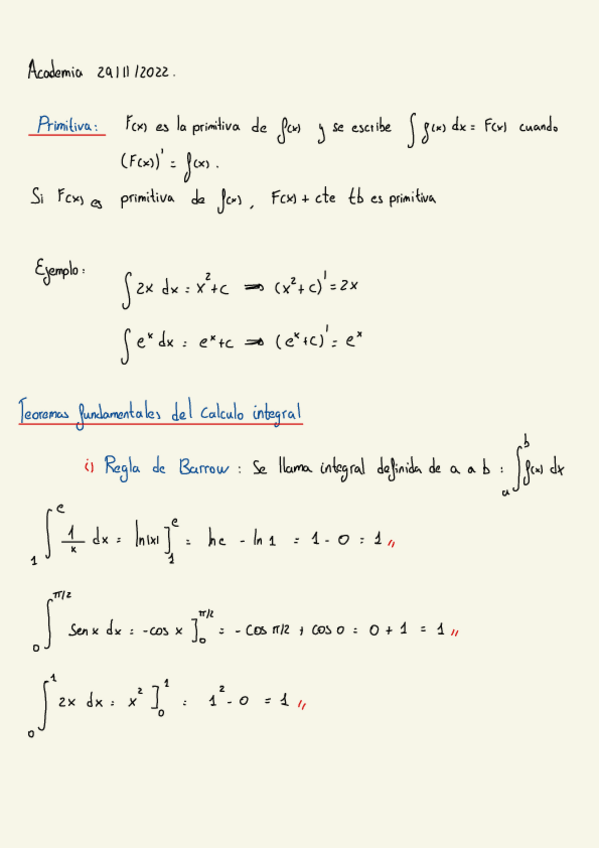 Academia 29/11/2022.
Primitiva: F(x) es la primitiva de f(x) y se escribe ∫ f(x) dx = F(x) cuando
(F(x))' = f(x).
Si F(x) es primitiva de f(x), F(x) + cte tb es primitiva
Ejemplo:
∫ 2x dx = x² + c ⇒ (x² + c)' = 2x
∫ eˣ dx = eˣ + c ⇒ (eˣ + c)' = eˣ
Teoremas fundamentales del Calculo integral
i) Regla de Barrow: Se llama integral definida de a a b: ∫ₐᵇ f(x) dx
∫₁ᵉ 1/x dx = ln|x|]₁ᵉ = lne - ln 1 = 1 - 0 = 1 //
∫₀^(π/2) Sen x dx = -cos x]₀^(π/2) = - cos π/2 + cos 0 = 0 + 1 = 1 //
∫₀¹ 2x dx = x²]₀¹ = 1² - 0 = 1 //